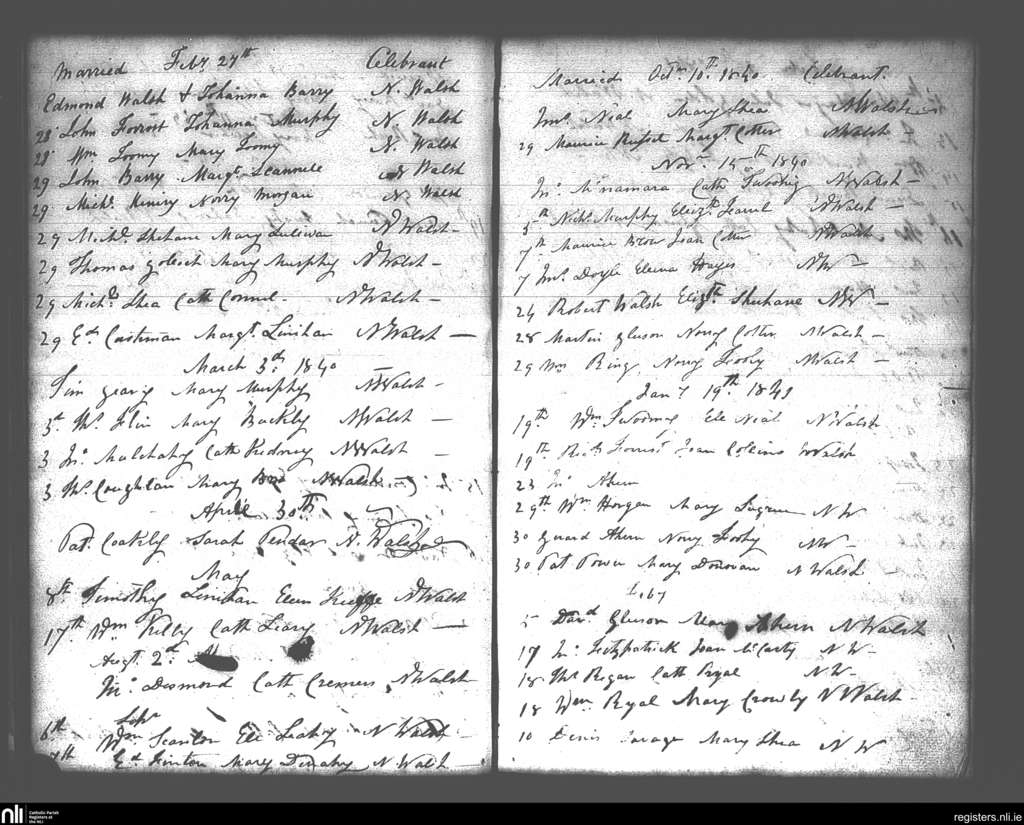 Married Feby 27th Celebrant
Edmond Walsh & Johanna Barry N. Walsh
28 John Forrest Johanna Murphy N. Walsh
28 Wm Toomy Mary Toomy N. Walsh
29 John Barry Margt Scannele N Walsh
29 Michl Kiniry Norry Morgan N Walsh
29 Michl Shehane Mary Sulivan N Walsh
29 Thomas Mary Murphy N Walsh
29 Michl Shea Cath Connel N Walsh
29 Ed Cashman Margt Linihan N Walsh
March 3d 1840
Tim Geary Mary Murphy N Walsh
3d Ths Flin Mary Buckly N Walsh
3 Jno Mulchahy Cath N Walsh
3 Ths Coughlan Mary N Walsh
April 30th
Pat Coakly Sarah Pendar N. Walsh
May
8th Timothy Linihan Elen Keeffe N Walsh
17th Wm Kelly Cath Leary N Walsh
Augt 2d
Jno Desmond Cath Cremen N Walsh
Sepr
6th Wm Scanlon Ele Leahy N Walsh
7th Ed Finton Mary N Walsh
Married Octr 10th 1840 Celebrant
Jno Neal Mary Shea N Walsh
29 Maurice Margt Cotter N Walsh
Novr 15th 1840
Jno McNamara Cath Twoohig N Walsh
5th Nichs Murphy Elizth N Walsh
7th Maurice Joan Cotter N Walsh
7 Jno Doyle Elena Hayes N W
24 Robert Walsh Elizth Shehane N W
28 Martin Gleeson Norry Cotter N Walsh
29 Wm Ring Norry N Walsh
Jany 19th 1841
19th Wm Twoomy Ele Neal N Walsh
19th Richd Forrest Joan Collins N Walsh
23 Jno Ahern
29th Wm Horgan Mary N W
30 Gerard Ahern Norry N W
30 Pat Power Mary Donovan N Walsh
5 Davd Gleeson Mary Ahern N Walsh
17 Jno Fitzpatrick Joan McCarty N W
18 Ths Regan Cath Ryal N W
18 Wm Ryal Mary Crowly N Walsh
10 Denis Savage Mary Shea N W
nli Catholic Parish Registers at the NLI
registers.nli.ie